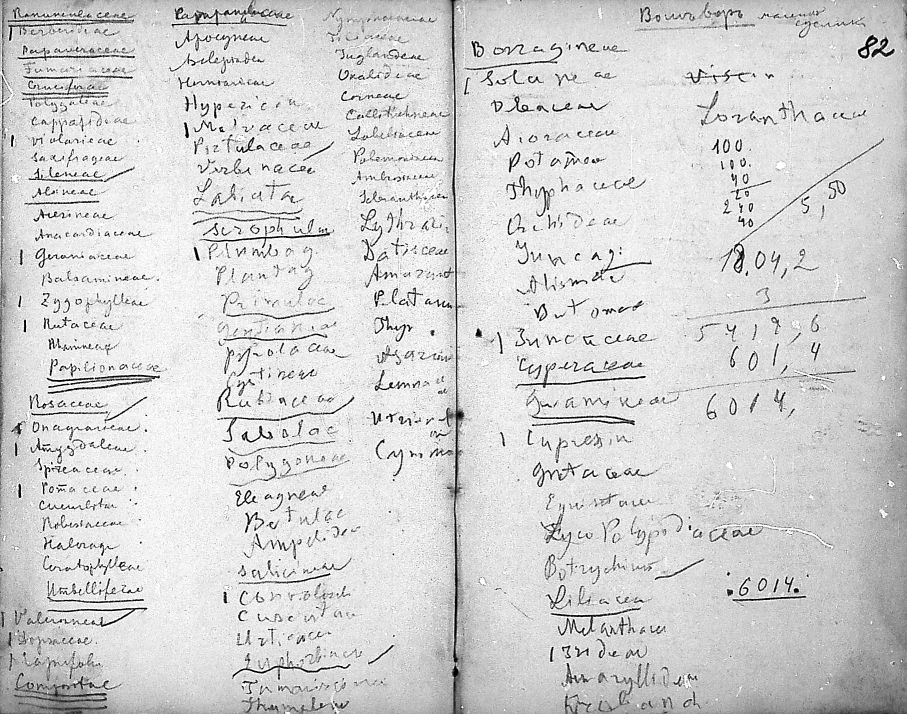 Ranunculaceae
Berberideae
Papaveraceae
Fumariaceae
Cruciferae
Polygaleae
Capparideae
Violarieae
Saxifrageae
Sileneae
Alsineae
Acerineae
Anacardiaceae
Geraniaceae
Balsamineae.
Zygophylleae
Rutaceae
Rhamneae
Papilionaceae
Rosaceae
Onagrarieae.
Amygdaleae.
Spireaceae.
Pomaceae
Cucurbitac
Halorage
Ceratophylleae
Umbelliferae
Valerianeae
Dipsaceae.
Caprifoli
Compositae
Apocyneae
Asclepiadea
Herniarieae
Hypericin
Malvaceae
Portulaceae
Verbenaceae
Labiatae
Scrophular
Plumbag
Plantag
Primulac
Gentianeae
Pyrolaceae
Cystineae
Rubiaceae
Salsolac
Polygoneae
Eleagneae
Betulac
Ampelideae
Salicineae
Convolvul
Cuscutae
Urticaceae
Euphorbiaceae
Tamariscineae
Thymeleae
Nymphaeaceae
Juglandeae
Oxalideae
Corneae
Callitrichneae
Lobeliaceae
Polemoniaceae
Ambrosiaceae
Scleranthaceae
Lythrar
Datisceae
Amarant
Platan
Lemnac
Utricul
82
Borragineae
Solaneae
Oleaceae
Aroraceae
Potameae
Thyphaceae
Orchideae
Juncagi
Alismac
Butomac
Juncaceae
Cyperaceae
Gramineae
Cypressin
Gnetaceae
Equisetaceae
Lyco Polypodiaceae
Botrychium
Liliaceae
Melanthaceae
Irideae
Amaryllideae
Loranthaceae
100.
100.
40
20
240
40
5,50
18,04,2
3
5412,6
601,4
6014,
.6014.